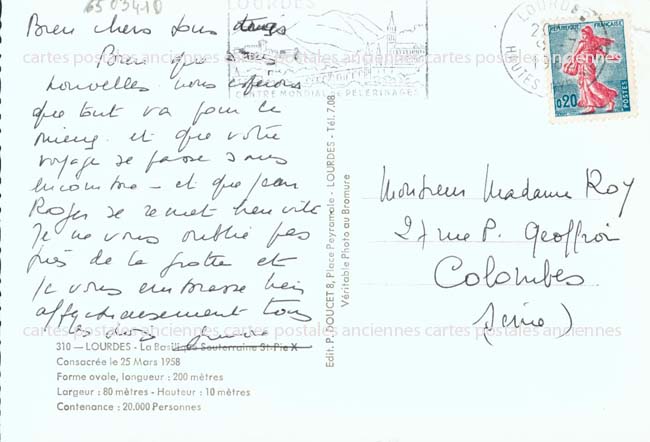 6503410
Bien chers tous
Bien que sans
nouvelles nous espérons
que tout va pour le
mieux et que votre
voyage se passe sans
encombre - et que Jean
Roger se remet bien vite
Je ne vous oublie pas
près de la grotte et
je vous embrasse bien
affectueusement tous
les deux
310 — LOURDES - La Basilique Souterraine St-Pie X
Consacrée le 25 Mars 1958
Forme ovale, longueur : 200 mètres
Largeur : 80 mètres - Hauteur : 10 mètres
Contenance : 20.000 Personnes
Edit. P. DOUCET 8, Place Peyramale - LOURDES - Tél. 7.08
Véritable Photo au Bromure
LOURDES
CENTRE MONDIAL DE PELERINAGES
LOURDES
HAUTES
REPUBLIQUE FRANÇAISE
0,20
POSTES
Monsieur Madame ROY
27 rue P. Geoffroi
Colombes
(Seine)
cartes postales anciennes cartes postales anciennes cartes postales anciennes
cartes postales anciennes cartes postales anciennes cartes postales anciennes